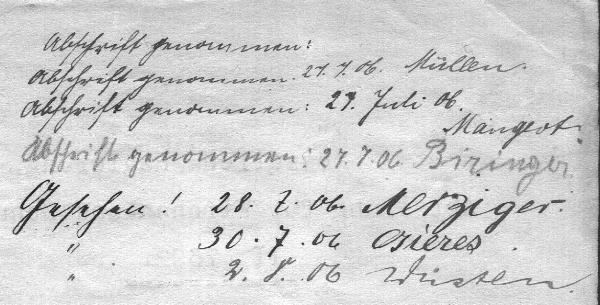 Abschrift genommen:
Abschrift genommen. 27.7.06. Müllen.
Abschrift genommen: 27. Juli 06.
Mangeot.
Abschrift genommen: 27.7.06 Biringer.
Gesehen! 28.7.06. Metziger.
" 30.7.06 Gieres.
" 2.8.06 Wüsten.